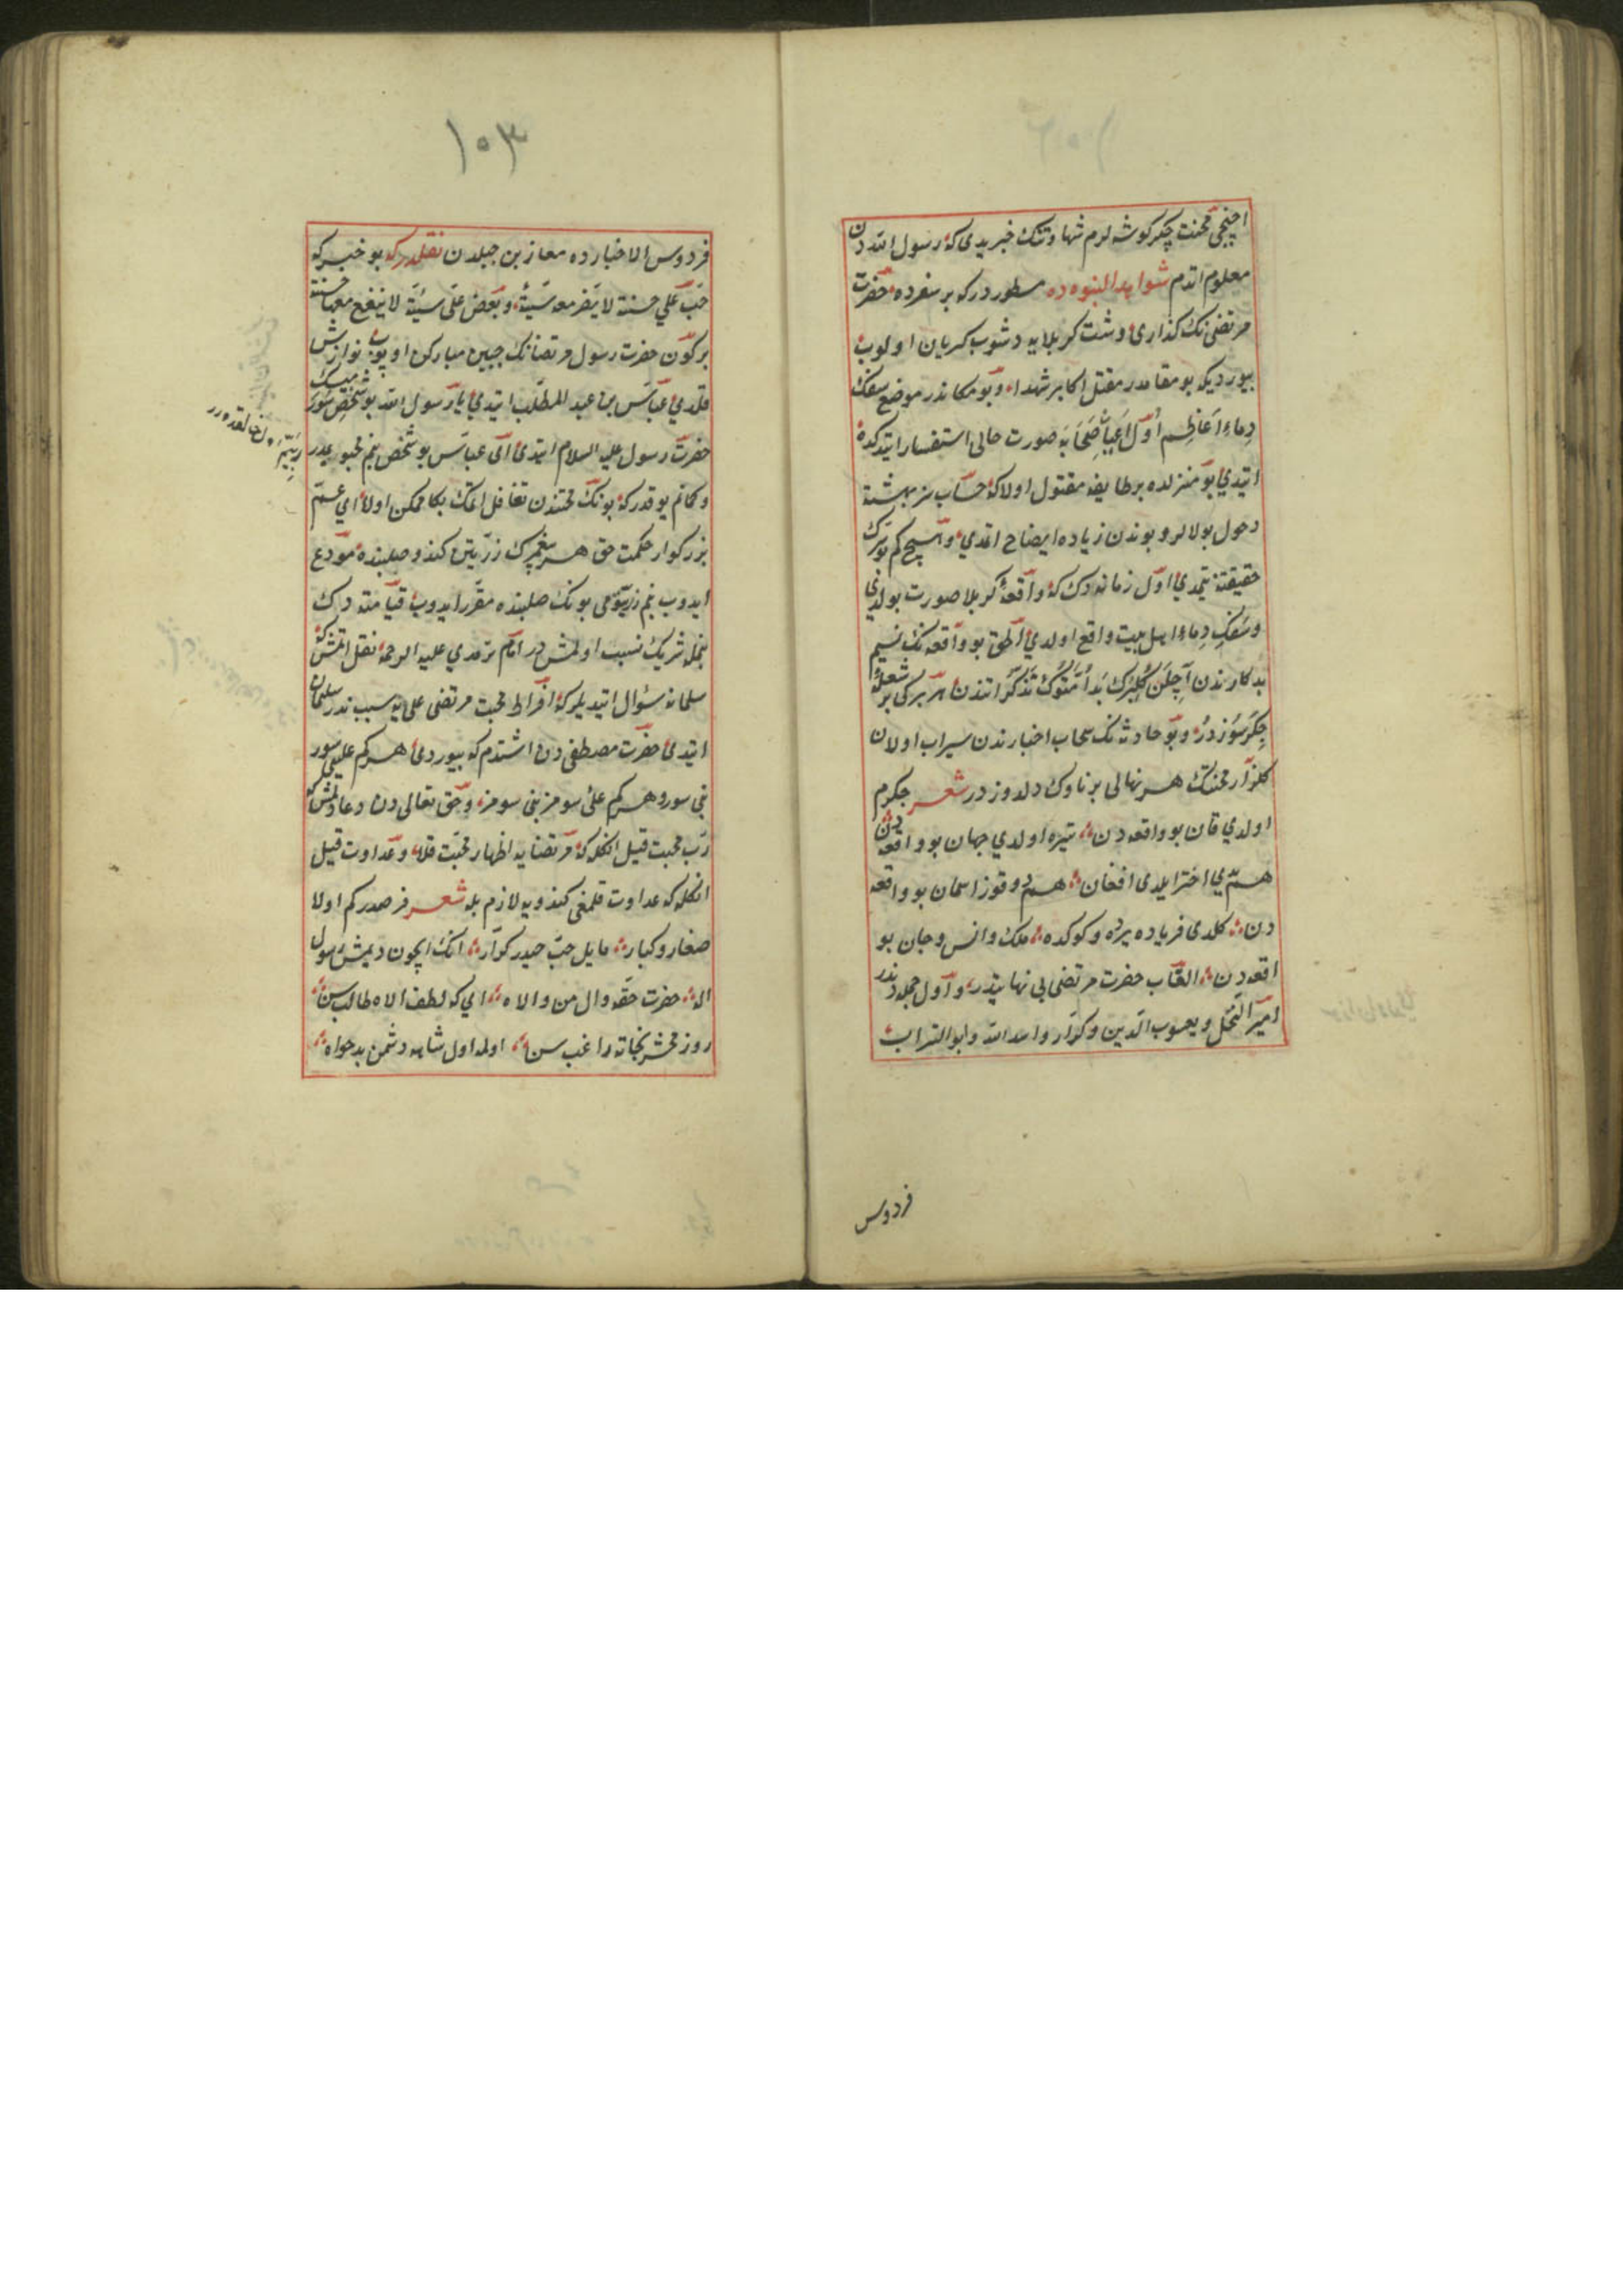 اچنجی محنت جکر کوشه لرم شهادتنک خبریدی که رسول الله دن
معلوم اتدم شواهد النبوه ده مسطور درکه بر سفرده حضرت
مرتضی نک کذاری دشت کربلایه دشوب کریان اولوب
بیوردیکه بو مقامدر مقتل اکابر شهداء و بو مکاندر موضع سفک
دماء اعاظم اول اعیان صحابه صورت حالی استفسار ایتدکده
ایتدی بو منزلده بر طایفه مقتول اولاکه حساب سز بهشته
دخول بولالر و بوندن زیاده ایضاح اتمدی و هیچ کم بو سرک
حقیقتنه یتمدی اول زمانه دک که واقعۀ کربلا صورت بولدی
و سفک دماء اهل بیت واقع اولدی الحق بو واقعه نک نسیم
بدکارندن آچلن کلبرک هر برکی بر شعلۀ
جکرسوزدر و بو حادثه نک سحاب اخبارندن سیراب اولان
کلزار محنتک هر نهالی بر ناوک دلدوزدر شعر جکرم
اولدی قان بو واقعه دن تیره اولدی جهان بو واقعه دن
هم یدی اختر ایلدی افغان هم دوقوز اسمان بو واقعه
دن کلدی فریاده یرده و کوکده ملک و انس و جان بو
اقعه دن القاب حضرت مرتضی بی نهایتدر و اول جمله دندر
امیر النحل و یعسوب الدین و کرار و اسد الله و ابو التراب
فردوس
۱۰۳
فردوس الاخبارده معاز بن جبلدن نقلدرکه بو خبر که
حب علی حسنة لا یضر معه سیئة و بغض علی سیئة لا ینفع معها حسنة
بر کون حضرت رسول مرتضانک جبین مبارکن اوپوب نوازش
قلدی عباس بن عبد المطلب ایتدی یا رسول الله بو شخص سورمیسک
حضرت رسول علیه السلام ایتدی ای عباس بو شخص بنم محبوبمدر
و کمانم یوقدرکه بونک محبتندن تغافل اتمک بکا ممکن اولا ای عم
بزرکوار حکمت حق هر پیغمبرک زریتن کندو صلبنده مودع
ایدوب بنم زریتومی بونک صلبنده مقرر ایدوب قیامته دک
بنمله شریک نسبت اولمشدر امام ترمدی علیه الرحمه نقل اتمشکه
سلمانه سؤال ایتدیلرکه افراط محبت مرتضی علی یه سبب ندر سلمان
ایتدی حضرت مصطفی دن اشتدم که بیوردی هر کم علیی سور
بنی سور و هر کم علی سومز بنی سومز و حق تعالی دن دعا اتمشکه
رب محبت قیل انکله که مرتضایه اظهار محبت قلا و عداوت قیل
انکله که عداوت قلمغی کندویه لازم بله شعر فرصدرکم اولا
صغار و کبار مایل حب حیدر کرار انک ایچون دیمش رسول
اله حضرت حقه وال من والاه ای که لطف الاه طالب سن
روز محشر نجاته راغب سن اوله اول شاهه دشمن بدخواه